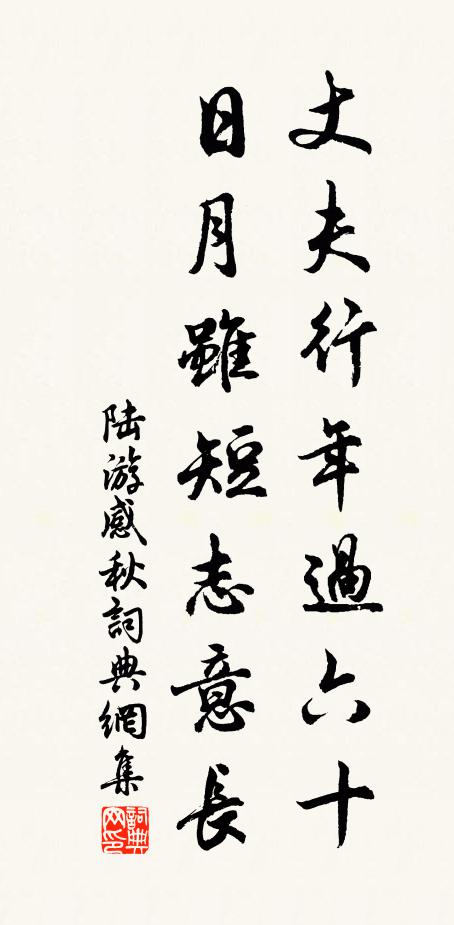 丈夫行年過六十
日月雖短志意長
陸游感秋詞典網集
詞典網印